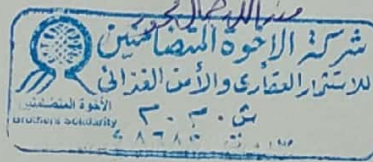 شركة الاخوة المتضامنين
للاستثمار العقارى والأمن الغذائى
الأخوة المتضامنين
Brothers Solidarity
ش.م.م